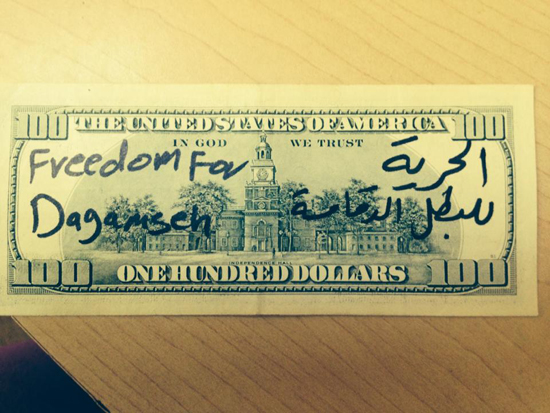 100 THE UNITED STATES OF AMERICA 100
IN GOD WE TRUST
Freedom For
Dagamseh
الحرية
للبطل الدقامسة
INDEPENDENCE HALL
100 ONE HUNDRED DOLLARS 100